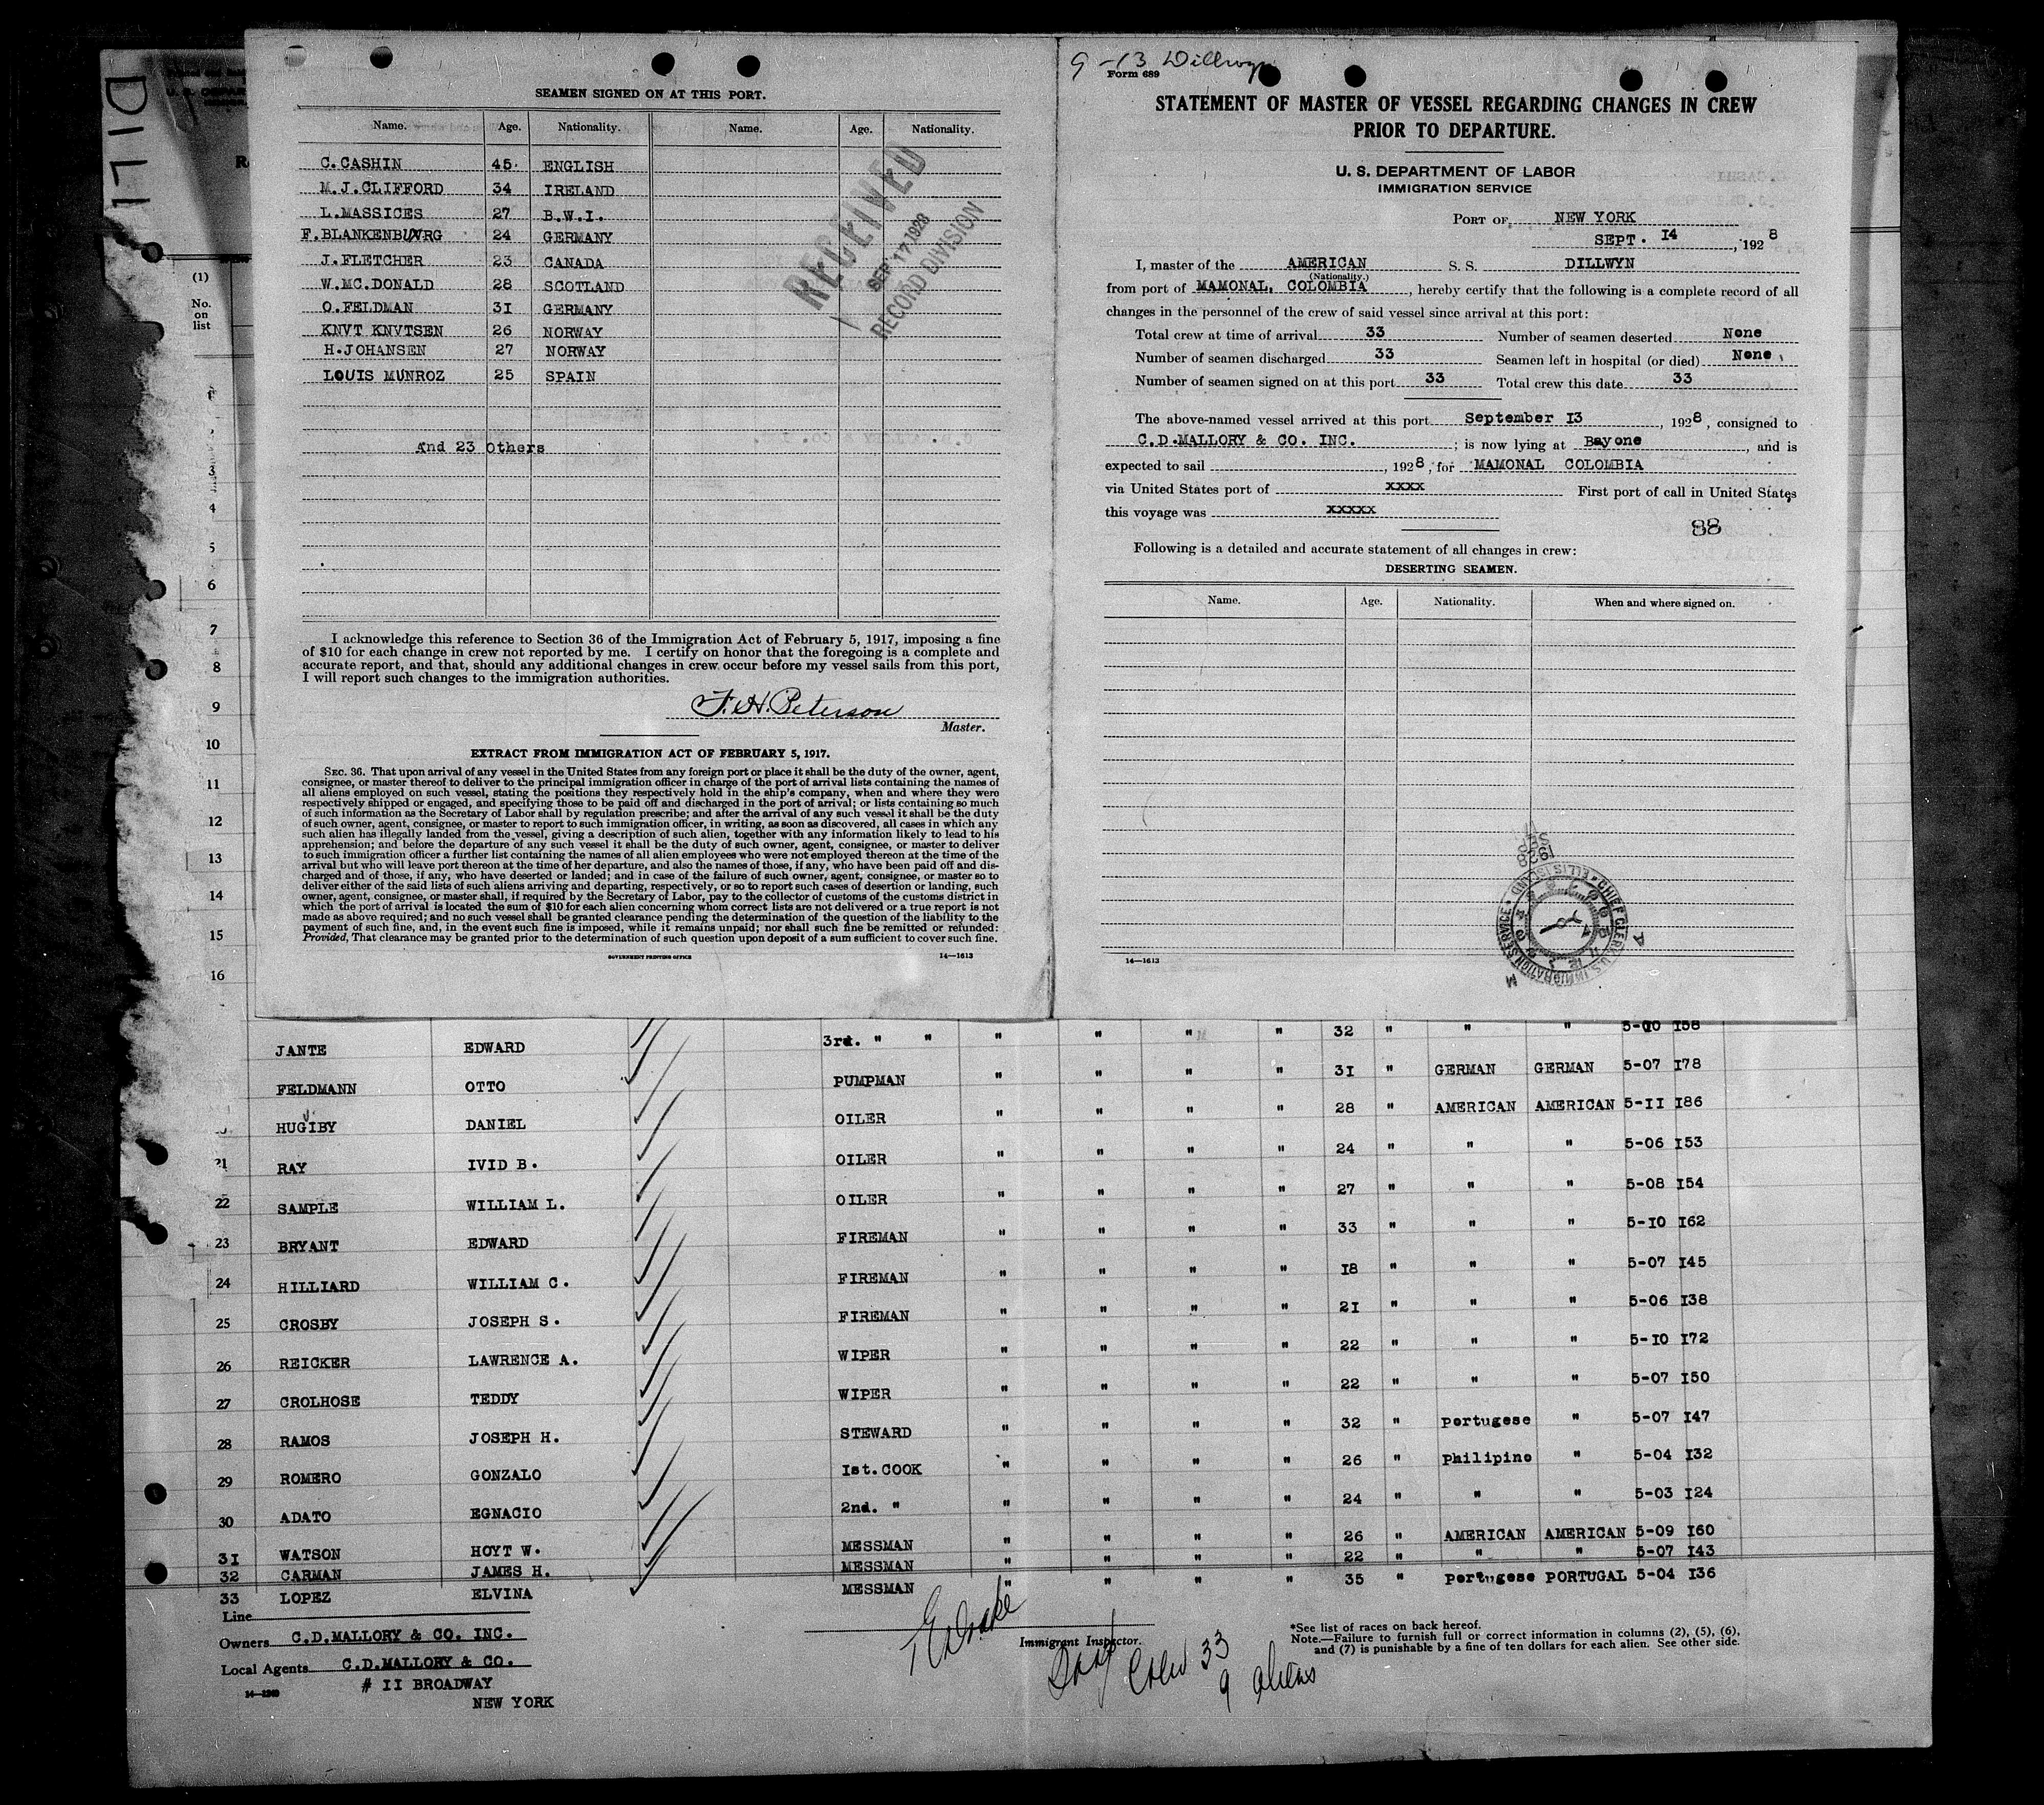 DILL
SEAMEN SIGNED ON AT THIS PORT.
Name. Age. Nationality. Name. Age. Nationality.
C.CASHIN 45 ENGLISH
M.J.CLIFFORD 34 IRELAND
L.MASSICES 27 B.W.I.
F.BLANKENBURG 24 GERMANY
J.FLETCHER 23 CANADA
W.MC.DONALD 28 SCOTLAND
O.FELDMAN 31 GERMANY
KNVT KNVTSEN 26 NORWAY
H.JOHANSEN 27 NORWAY
LOUIS MUNROZ 25 SPAIN
And 23 others
RECEIVED
SEP 17 1928
RECORD DIVISION
I acknowledge this reference to Section 36 of the Immigration Act of February 5, 1917, imposing a fine
of $10 for each change in crew not reported by me. I certify on honor that the foregoing is a complete and
accurate report, and that, should any additional changes in crew occur before my vessel sails from this port,
I will report such changes to the immigration authorities.
F. H. Peterson
Master.
EXTRACT FROM IMMIGRATION ACT OF FEBRUARY 5, 1917.
SEC. 36. That upon arrival of any vessel in the United States from any foreign port or place it shall be the duty of the owner, agent,
consignee, or master thereof to deliver to the principal immigration officer in charge of the port of arrival lists containing the names of
all aliens employed on such vessel, stating the positions they respectively hold in the ship's company, when and where they were
respectively shipped or engaged, and specifying those to be paid off and discharged in the port of arrival; or lists containing so much
of such information as the Secretary of Labor shall by regulation prescribe; and after the arrival of any such vessel it shall be the duty
of such owner, agent, consignee, or master to report to such immigration officer, in writing, as soon as discovered, all cases in which any
such alien has illegally landed from the vessel, giving a description of such alien, together with any information likely to lead to his
apprehension; and before the departure of any such vessel it shall be the duty of such owner, agent, consignee, or master to deliver
to such immigration officer a further list containing the names of all alien employees who were not employed thereon at the time of the
arrival but who will leave port thereon at the time of her departure, and also the names of those, if any, who have been paid off and dis-
charged and of those, if any, who have deserted or landed; and in case of the failure of such owner, agent, consignee, or master so to
deliver either of the said lists of such aliens arriving and departing, respectively, or so to report such cases of desertion or landing, such
owner, agent, consignee, or master shall, if required by the Secretary of Labor, pay to the collector of customs of the customs district in
which the port of arrival is located the sum of $10 for each alien concerning whom correct lists are not delivered or a true report is not
made as above required; and no such vessel shall be granted clearance pending the determination of the question of the liability to the
payment of such fine, and, in the event such fine is imposed, while it remains unpaid; nor shall such fine be remitted or refunded:
Provided, That clearance may be granted prior to the determination of such question upon deposit of a sum sufficient to cover such fine.
GOVERNMENT PRINTING OFFICE 14—1613
9-13 Dillwyn
Form 689
STATEMENT OF MASTER OF VESSEL REGARDING CHANGES IN CREW
PRIOR TO DEPARTURE.
U. S. DEPARTMENT OF LABOR
IMMIGRATION SERVICE
PORT OF NEW YORK
SEPT. 14, 1928
I, master of the AMERICAN S. S. DILLWYN
(Nationality.)
from port of MAMONAL, COLOMBIA, hereby certify that the following is a complete record of all
changes in the personnel of the crew of said vessel since arrival at this port:
Total crew at time of arrival 33 Number of seamen deserted None
Number of seamen discharged 33 Seamen left in hospital (or died) None
Number of seamen signed on at this port 33 Total crew this date 33
The above-named vessel arrived at this port September 13, 1928, consigned to
C.D.MALLORY & CO. INC.; is now lying at Bayone, and is
expected to sail , 1928, for MAMONAL COLOMBIA
via United States port of xxxx First port of call in United States
this voyage was xxxxx
88
Following is a detailed and accurate statement of all changes in crew:
DESERTING SEAMEN.
Name. Age. Nationality. When and where signed on.
1928
CHIEF CLERK U.S. IMMIGRATION SERVICE ELLIS ISLAND
A
M
14—1613
(1)
No.
on
list
3
4
5
6
7
8
9
10
11
12
13
14
15
16
JANTE EDWARD 3rd. " " " " " " 32 " " " 5-00 158
FELDMANN OTTO PUMPMAN " " " " 31 " GERMAN GERMAN 5-07 178
HUGIBY DANIEL OILER " " " " 28 " AMERICAN AMERICAN 5-11 186
21 RAY IVID B. OILER " " " " 24 " " " 5-06 153
22 SAMPLE WILLIAM L. OILER " " " " 27 " " " 5-08 154
23 BRYANT EDWARD FIREMAN " " " " 33 " " " 5-10 162
24 HILLIARD WILLIAM C. FIREMAN " " " " 18 " " " 5-07 145
25 CROSBY JOSEPH S. FIREMAN " " " " 21 " " " 5-06 138
26 REICKER LAWRENCE A. WIPER " " " " 22 " " " 5-10 172
27 CROLHOSE TEDDY WIPER " " " " 22 " " " 5-07 150
28 RAMOS JOSEPH H. STEWARD " " " " 32 " Portugese " 5-07 147
29 ROMERO GONZALO 1st. COOK " " " " 26 " Philipino " 5-04 132
30 ADATO EGNACIO 2nd. " " " " " 24 " " " 5-03 124
31 WATSON HOYT W. MESSMAN " " " " 26 " AMERICAN AMERICAN 5-09 160
32 CARMAN JAMES H. MESSMAN " " " " 22 " " " 5-07 143
33 LOPEZ ELVINA MESSMAN " " " " 35 " Portugese PORTUGAL 5-04 136
Line
Owners C.D.MALLORY & CO. INC.
Local Agents C.D.MALLORY & CO.
# 11 BROADWAY
NEW YORK
14—1240
Immigrant Inspector.
Crew 33
9 aliens
*See list of races on back hereof.
Note.—Failure to furnish full or correct information in columns (2), (5), (6),
and (7) is punishable by a fine of ten dollars for each alien. See other side.